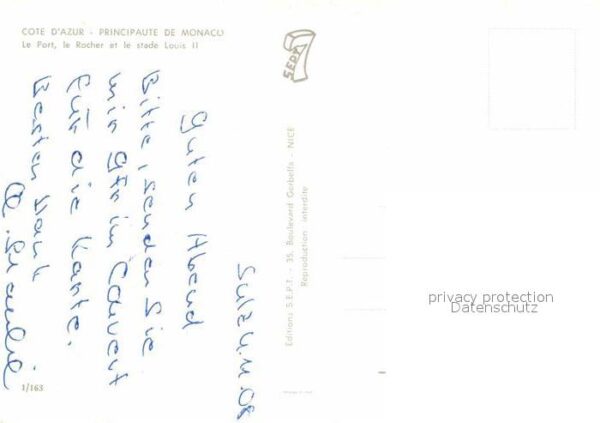 COTE D'AZUR - PRINCIPAUTE DE MONACO
Le Port, le Rocher et le stade Louis II
SEPT
Sulz 4.11.08
Guten Abend
Bitte, senden Sie
mir gfs im Couvert
für die Karte.
Besten Dank
1/163
Editions S.E.P.T. - 35, Boulevard Gorbella - NICE
Reproduction interdite
privacy protection
Datenschutz